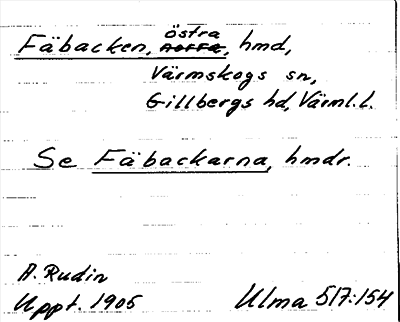 Fäbacken, östra, hmd,
Värmskogs sn,
Gillbergs hd, Värml. l.
Se Fäbackarna, hmdr.
A. Rudin
Uppt. 1905 Ulma 517:154